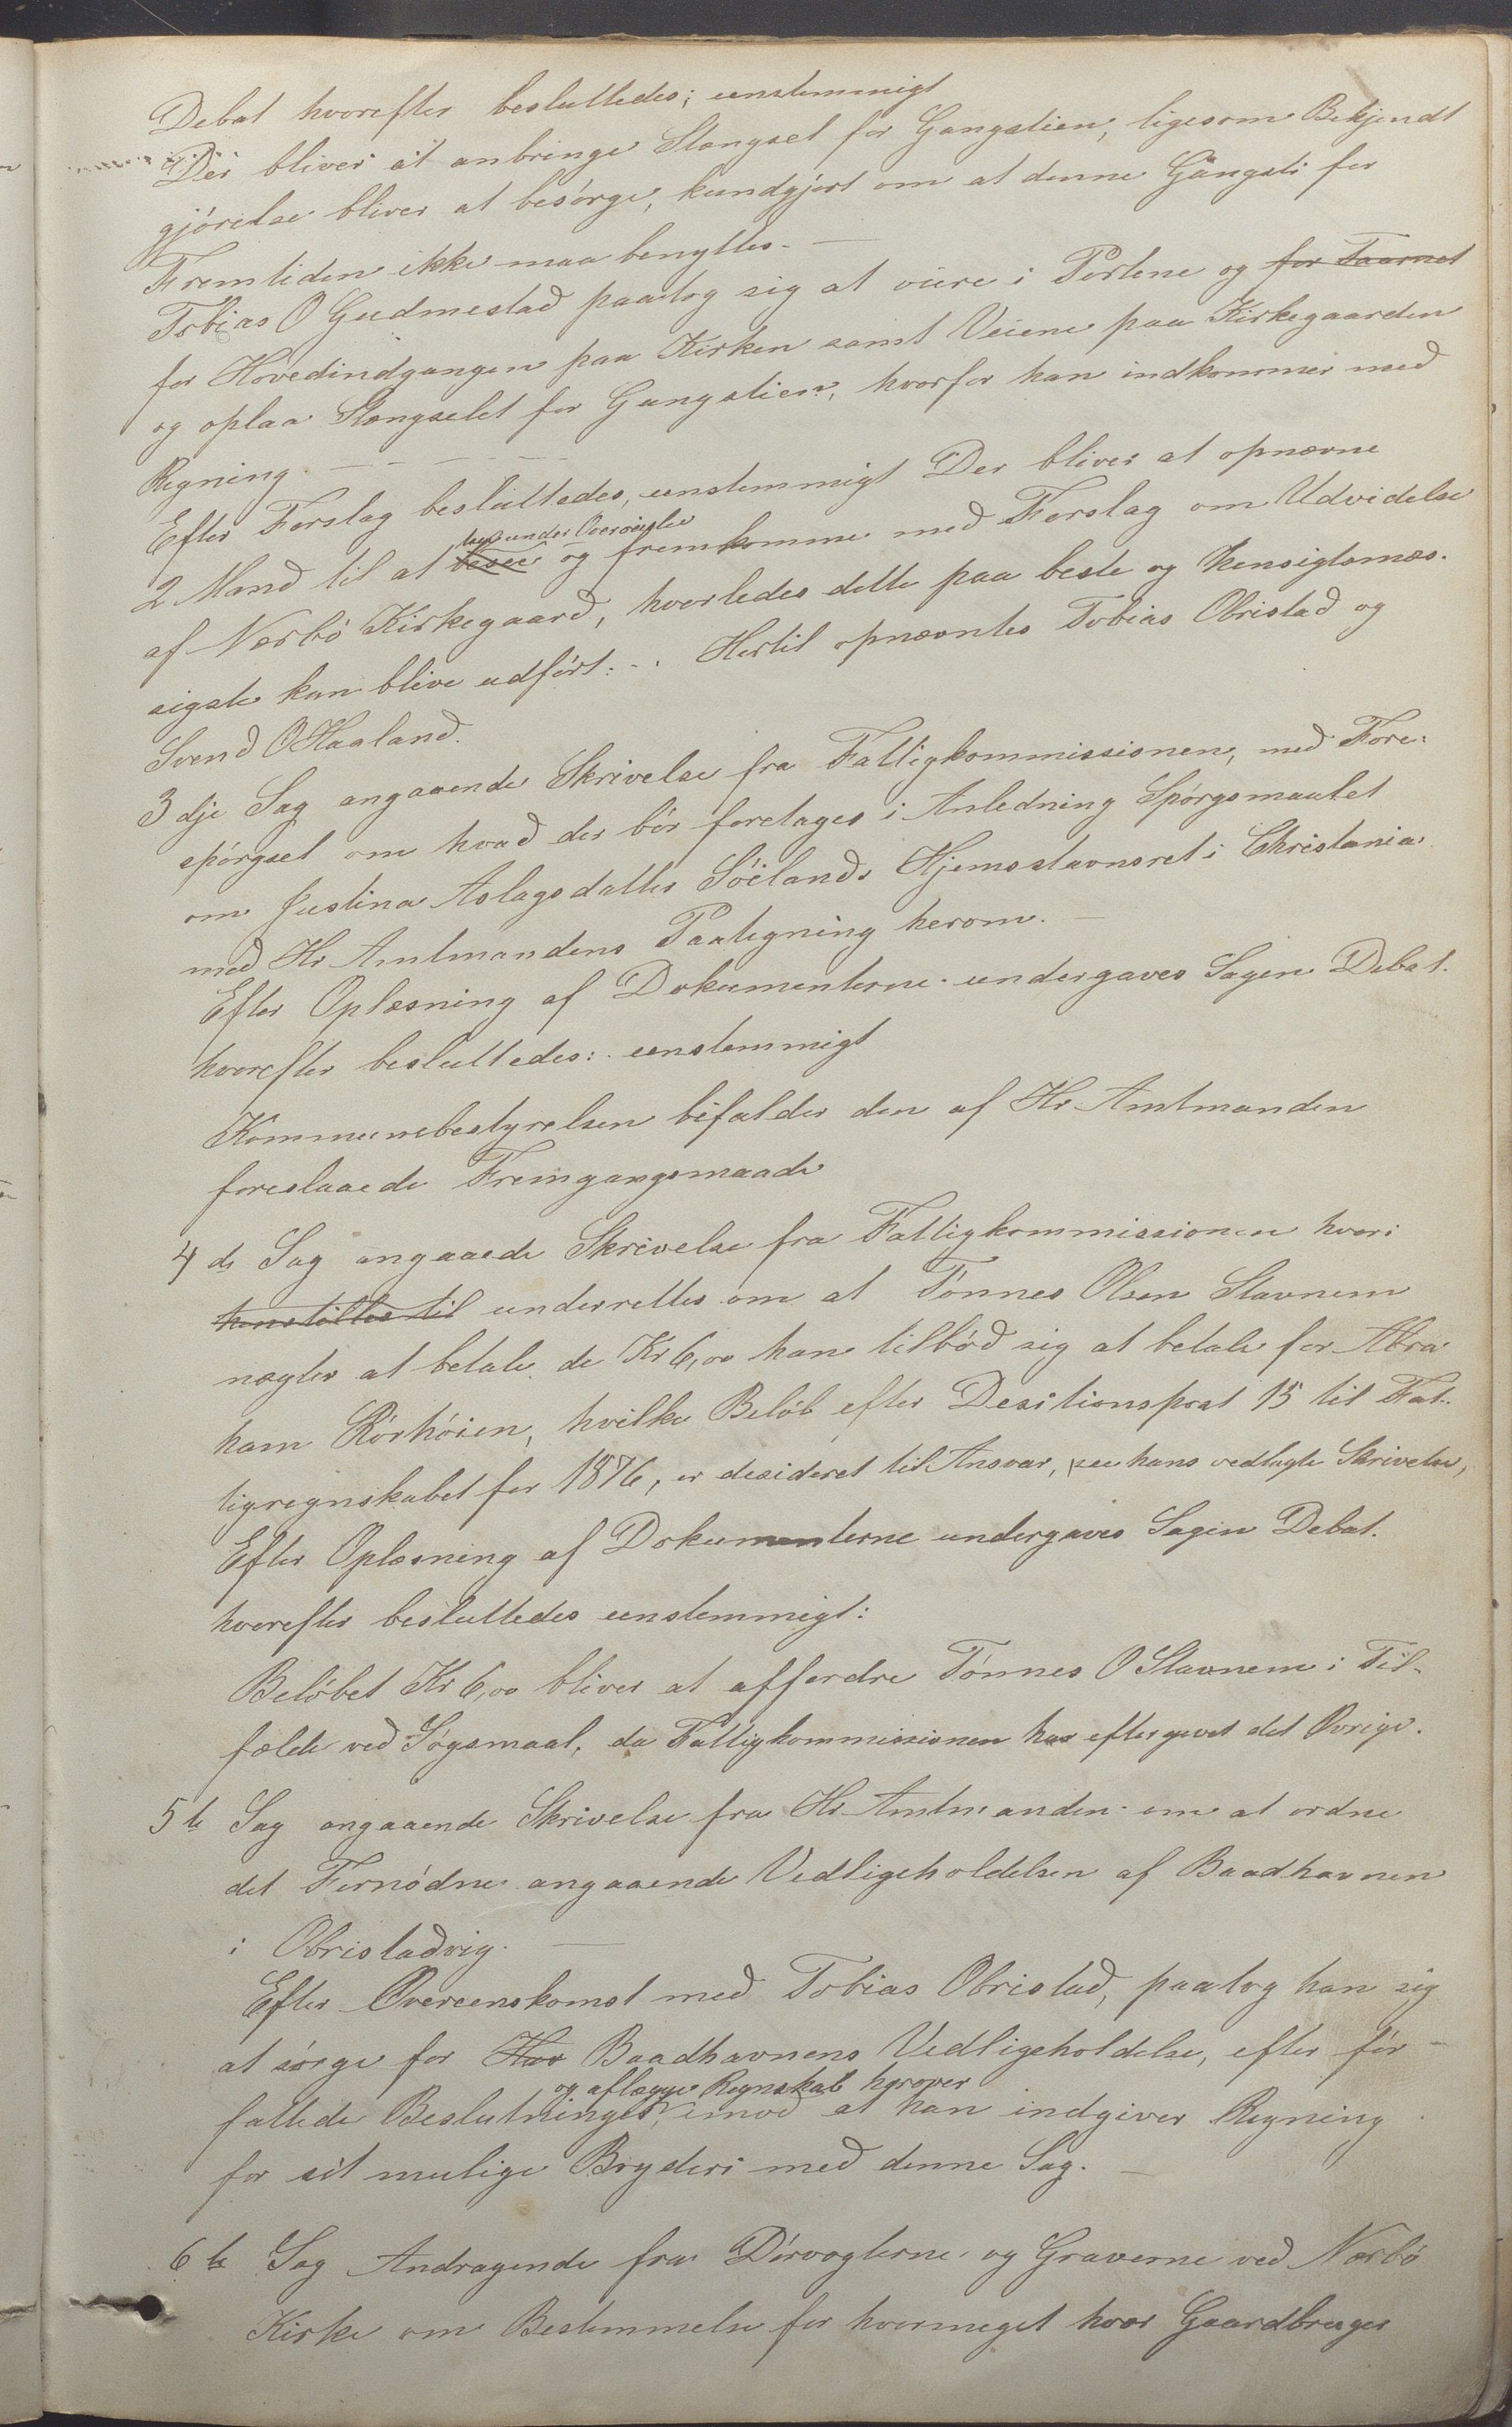 Debat hvorefter besluttedes; eenstemmigt
Der bliver at anbringe Stængsel for Gangstien, ligesom Bekjendt
gjörelse bliver at besörge, kundgjort om at denne Gangsti for
Fremtiden ikke maa benyttes. —
Tobias O Gudmestad paatog sig at være i Portene og for Taarnet
for Hovedindgangen paa Kirken samt Veiene paa Kirkegaarden
og oplaa Stængselet for Gangstien, hvorfor han indkommer med
Regning. — — — —
Efter Forslag besluttedes, eenstemmigt Der bliver at opnævne
2 Mand til at og fremkomme med Forslag om Udvidelse
af Nærbö Kirkegaard, hvorledes dette paa beste og Hensigtsmæs-
sigste kan blive udfört: -. Hertil opnævntes Tobias Obristad og
Svend O Haaland.
3 dje Sag angaaende Skrivelse fra Fattigkommissionen, med Fore-
spörgsel om hvad der bör foretages i Anledning Spörgsmaalet
om Justina Aslagsdatter Söilands Hjemsstavnsret i Christania
med Hr Amtmandens Paategning herom. —
Efter Oplæsning af Dokumenterne undergaves Sagen Debat.
hvorefter besluttedes: eenstemmigt
Kommunebestyrelsen bifalder den af Hr Amtmanden
foreslaaede Fremgangsmaade
4 de Sag angaaede Skrivelse fra Fattigkommissionen hvori
henstilles til underrettes om at Tönnes Olsen Stavnem
nægter at betale de Kr 6,00 han tilböd sig at betale for Abra
ham Rörhöien, hvilke Belöb efter Desitionspost 15 til Fat-
tigregnskabet for 1876, er desideret til Ansvar, see hans vedlagte Skrivelse,
Efter Oplæsning af Dokumenterne undergaves Sagen Debat.
hvorefter besluttedes eenstemmigt:
Belöbet Kr 6,00 bliver at affordre Tönnes O Stavnem i Til-
fælde ved Sögsmaal, da Fattigkommissionen har eftergivet det Övrige.
5 te Sag angaaende Skrivelse fra Hr Amtmanden om at ordne
det Fornödne angaaende Vedligeholdelsen af Baadhavnen
i Obristadvig. —
Efter Overeenskomst med Tobias Obristad, paatog han sig
at sörge for Hav Baadhavnens Vedligeholdelse, efter för
og aflægge Regnskab herover
fattede Beslutninger, imod at han indgiver Regning
for sit mulige Bryderi med denne Sag. —
6 te Sag Andragende fra Dörvogterne og Graverne ved Nærbö
Kirke om Bestemmelse for hvormeget hver Gaardbruger